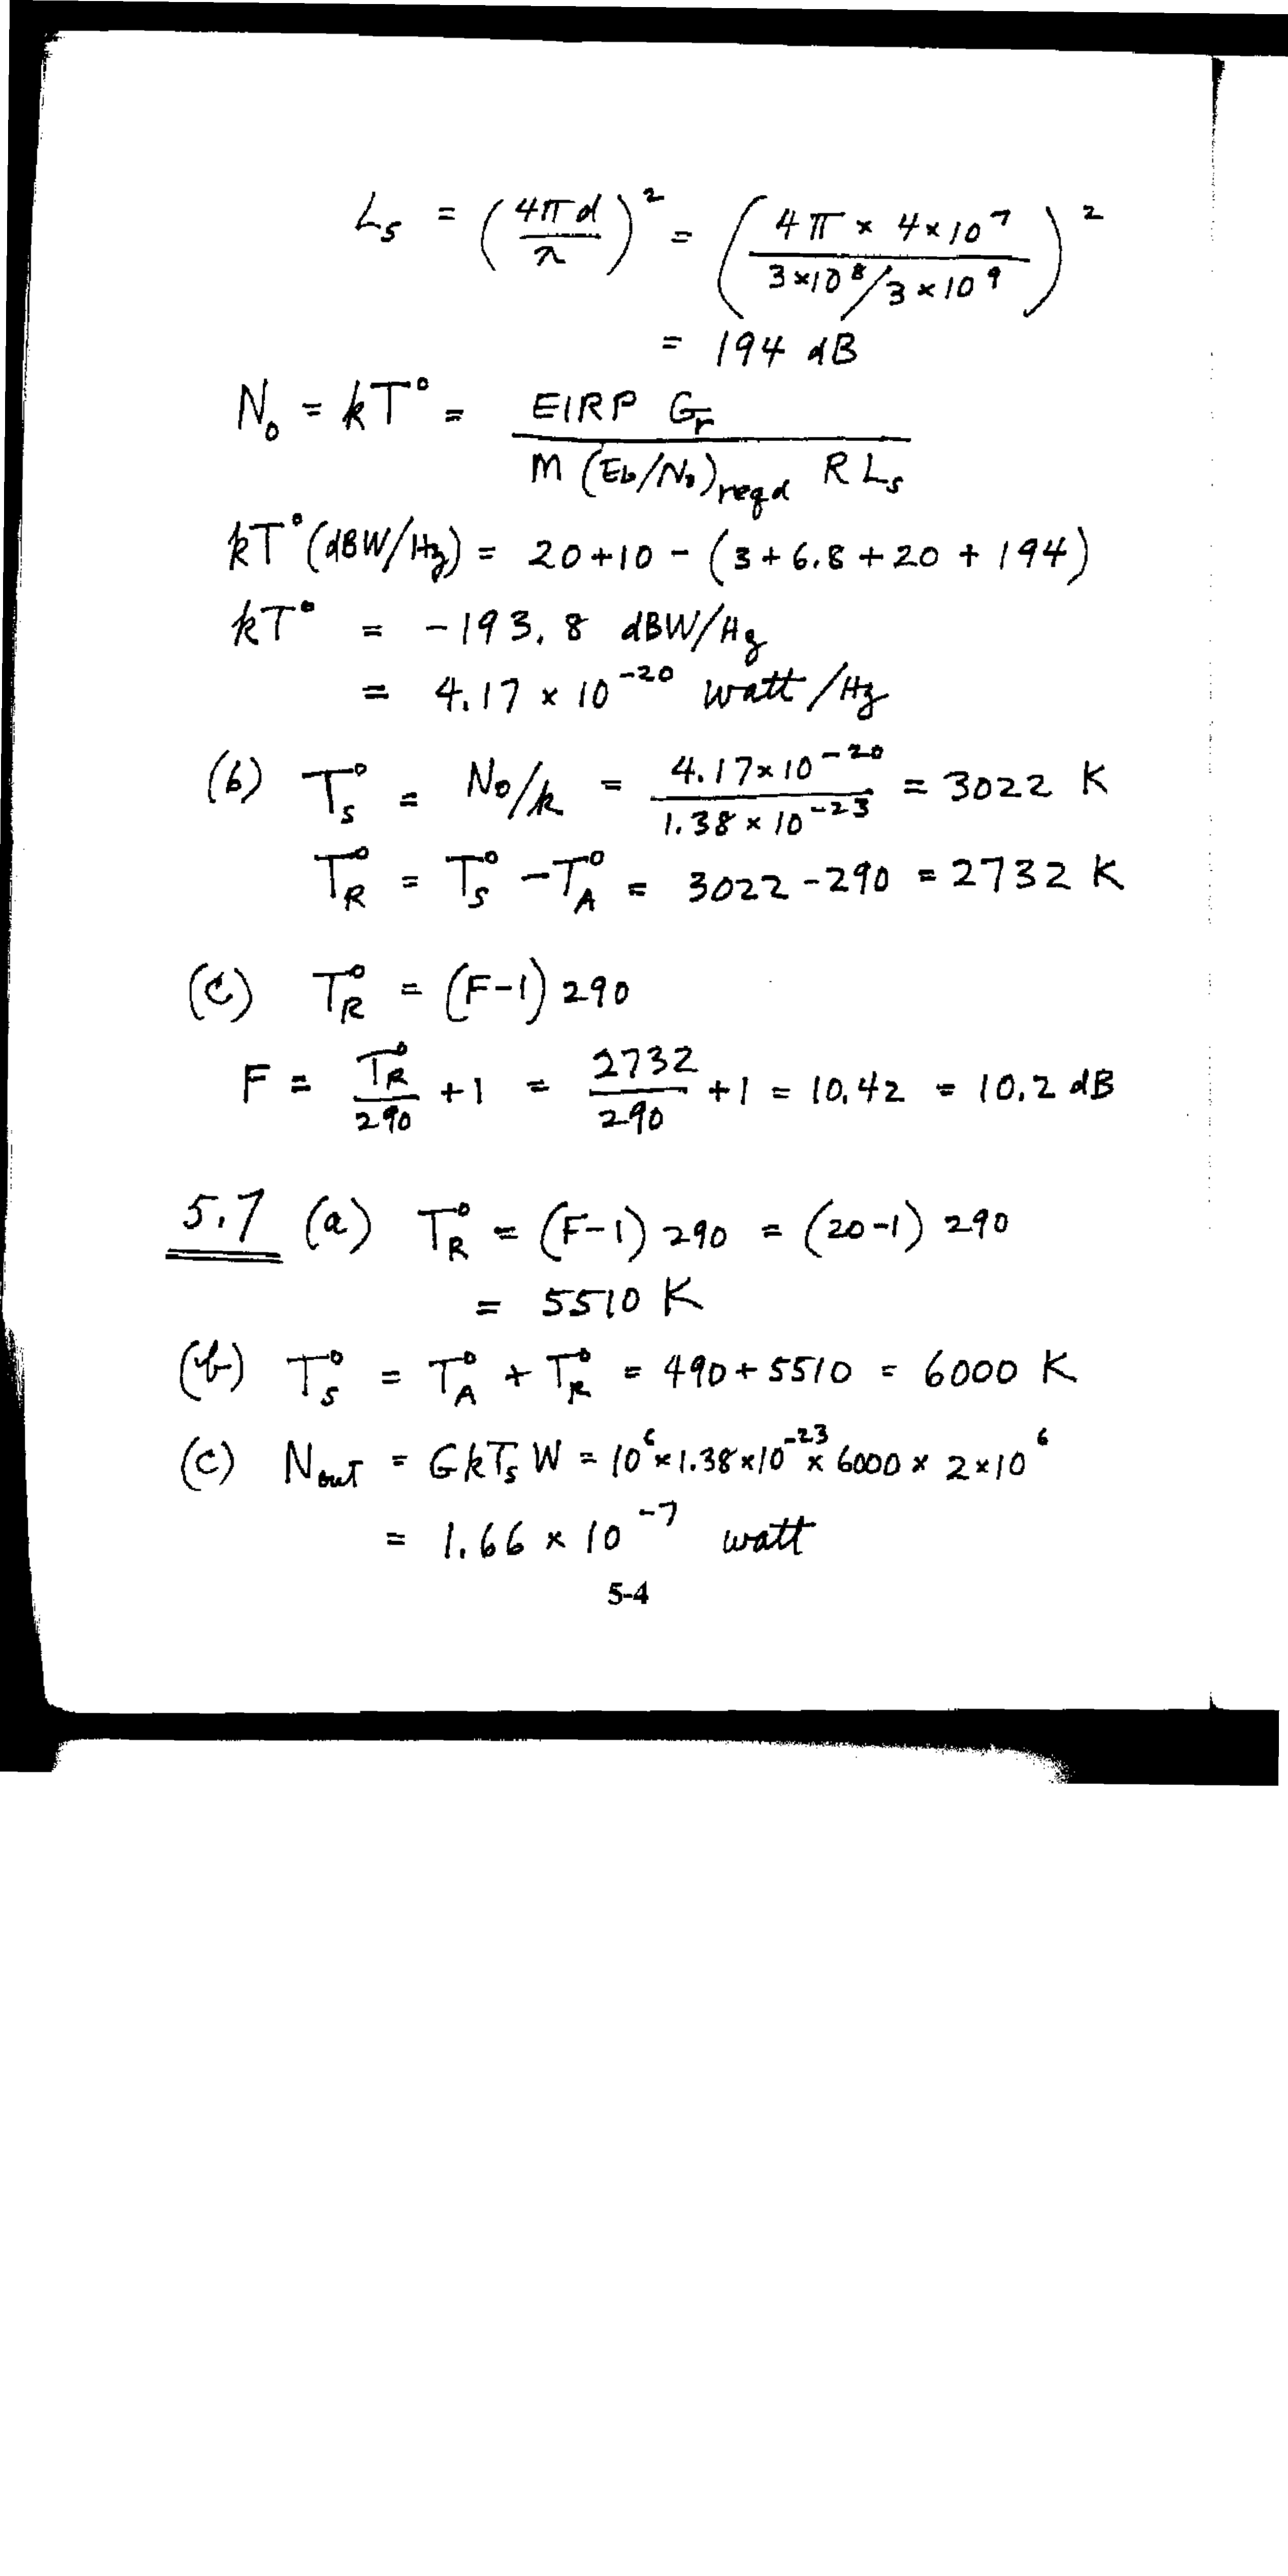 Ls = (4πd/λ)² = (4π × 4×10⁷ / 3×10⁸/3×10⁹)²
= 194 dB
N₀ = kT° = EIRP Gr / M (Eb/N₀)reqd R Ls
kT° (dBW/Hz) = 20+10 - (3+6.8+20+194)
kT° = -193.8 dBW/Hz
= 4.17 × 10⁻²⁰ watt/Hz
(b) Ts° = N₀/k = 4.17×10⁻²⁰ / 1.38×10⁻²³ = 3022 K
TR° = Ts° - TA° = 3022 - 290 = 2732 K
(c) TR° = (F-1) 290
F = TR°/290 + 1 = 2732/290 + 1 = 10.42 = 10.2 dB
5.7 (a) TR° = (F-1) 290 = (20-1) 290
= 5510 K
(b) Ts° = TA° + TR° = 490 + 5510 = 6000 K
(c) Nout = GkTs°W = 10⁶×1.38×10⁻²³ × 6000 × 2×10⁶
= 1.66 × 10⁻⁷ watt
5-4